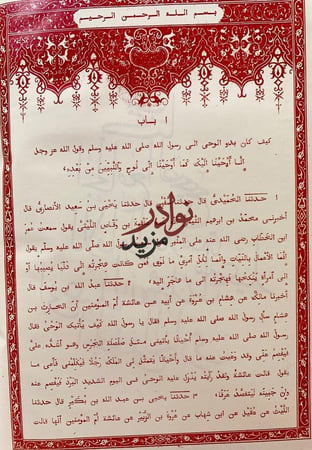 بسم الله الرحمن الرحيم
١ باب
كيف كان بدو الوحى الى رسول الله صلى الله عليه وسلم وقول الله عز وجل
إِنَّا أَوْحَيْنَا إِلَيْكَ كَمَا أَوْحَيْنَا إِلَى نُوحٍ وَالنَّبِيِّينَ مِنْ بَعْدِهِ
١ حدثنا الحُمَيْدِىُّ قال حدثنا يحيى بن سعيد الأنصارىُّ قال
أخبرنى محمد بن ابرهيم بن وقّاص اللَّيْثىَّ يقول سمعت عمر
ابن الخطّاب رضى الله عنه على المنبر الله صلى الله عليه وسلم يقول
إنّما الأعمال بالنيّات وإنّما لكلّ امرئ ما نوى فمن كانت هجرته إلى دنيا يصيبها أو
إلى امرأة ينكحها فهجرته إلى ما هاجر إليه ٢ حدثنا عبد الله بن يوسف قال
أخبرنا مالك عن هشام بن عروة عن أبيه عن عائشة أمّ المؤمنين أنّ الحارث بن
هشام سأل رسول الله صلى الله عليه وسلم فقال يا رسول الله كيف يأتيك الوحى فقال
رسول الله صلى الله عليه وسلم أحيانًا يأتينى مثل صلصلة الجرس وهو أشدّه علىّ
فيفصم عنّى وقد وعيت عنه ما قال وأحيانًا يتمثّل لى الملك رجلًا فيكلّمنى فأعى ما
يقول قالت عائشة ولقد رأيته ينزل عليه الوحى فى اليوم الشديد البرد فيفصم عنه
وإنّ جبينه ليتفصّد عرقًا ٣ حدثنا يحيى بن عبد الله بن بُكَيْر قال حدثنا
اللَّيْث عن عُقَيْل عن ابن شهاب عن عروة بن الزُّبَيْر عن عائشة أمّ المؤمنين أنّها قالت
نوادر
مزيد